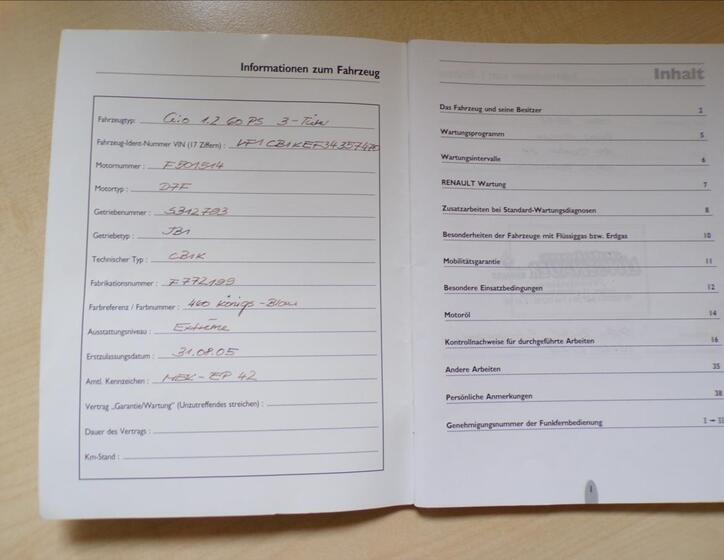 Informationen zum Fahrzeug
Fahrzeugtyp: Clio 1.2 60 PS 3-Türer
Fahrzeug-Ident-Nummer VIN (17 Ziffern) : VF1CB1KEF34357470
Motornummer : F501514
Motortyp : D7F
Getriebenummer : S312793
Getriebetyp : JB1
Technischer Typ : CB1K
Fabrikationsnummer : F772199
Farbreferenz / Farbnummer : 460 Königs-Blau
Ausstattungsniveau : Extrême
Erstzulassungsdatum : 31.08.05
Amtl. Kennzeichen : MEK-EP 42
Vertrag „Garantie/Wartung" (Unzutreffendes streichen) :
Dauer des Vertrags :
Km-Stand :
Inhalt
Das Fahrzeug und seine Besitzer 2
Wartungsprogramm 5
Wartungsintervalle 6
RENAULT Wartung 7
Zusatzarbeiten bei Standard-Wartungsdiagnosen 8
Besonderheiten der Fahrzeuge mit Flüssiggas bzw. Erdgas 10
Mobilitätsgarantie 11
Besondere Einsatzbedingungen 12
Motoröl 14
Kontrollnachweise für durchgeführte Arbeiten 16
Andere Arbeiten 35
Persönliche Anmerkungen 38
Genehmigungsnummer der Funkfernbedienung
1